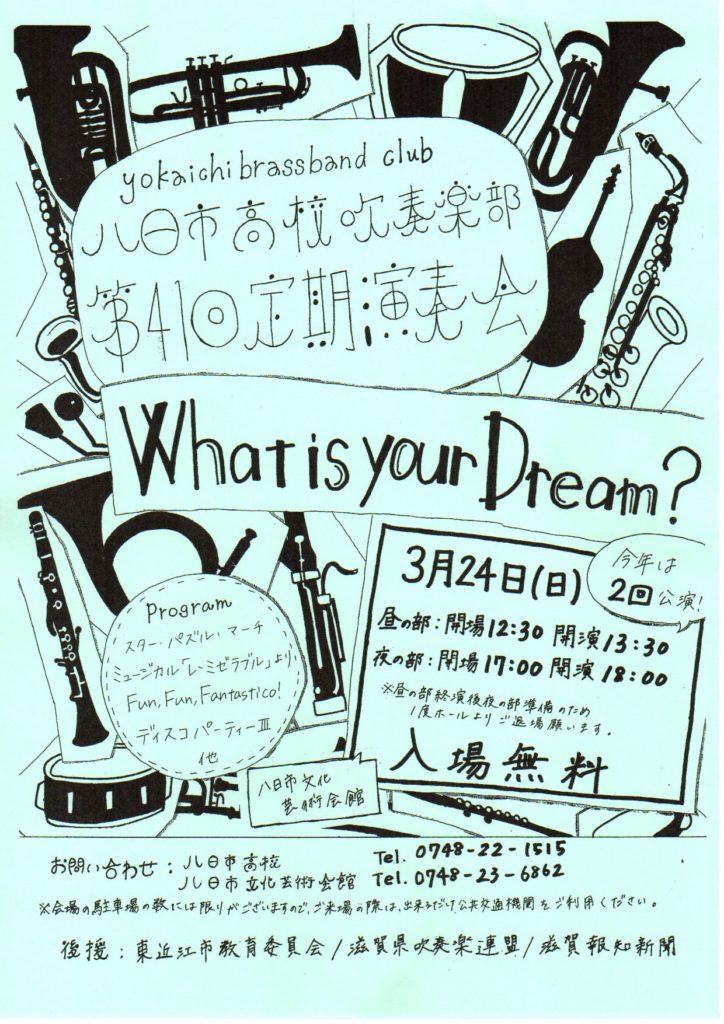 yokaichi brassband club
八日市高校吹奏楽部
第41回定期演奏会
What is your Dream?
3月24日(日)
今年は
2回公演!
昼の部:開場12:30 開演13:30
夜の部:開場17:00 開演18:00
※昼の部終演後夜の部準備のため
1度ホールよりご退場願います。
入場無料
Program
スター・パズル・マーチ
ミュージカル「レ・ミゼラブル」より
Fun, Fun, Fantastico!
ディスコパーティーⅢ
他
八日市文化
芸術会館
お問い合わせ:八日市高校 Tel. 0748-22-1515
八日市文化芸術会館 Tel. 0748-23-6862
※会場の駐車場の数には限りがございますので、ご来場の際は、出来るだけ公共交通機関をご利用ください。
後援:東近江市教育委員会/滋賀県吹奏楽連盟/滋賀報知新聞